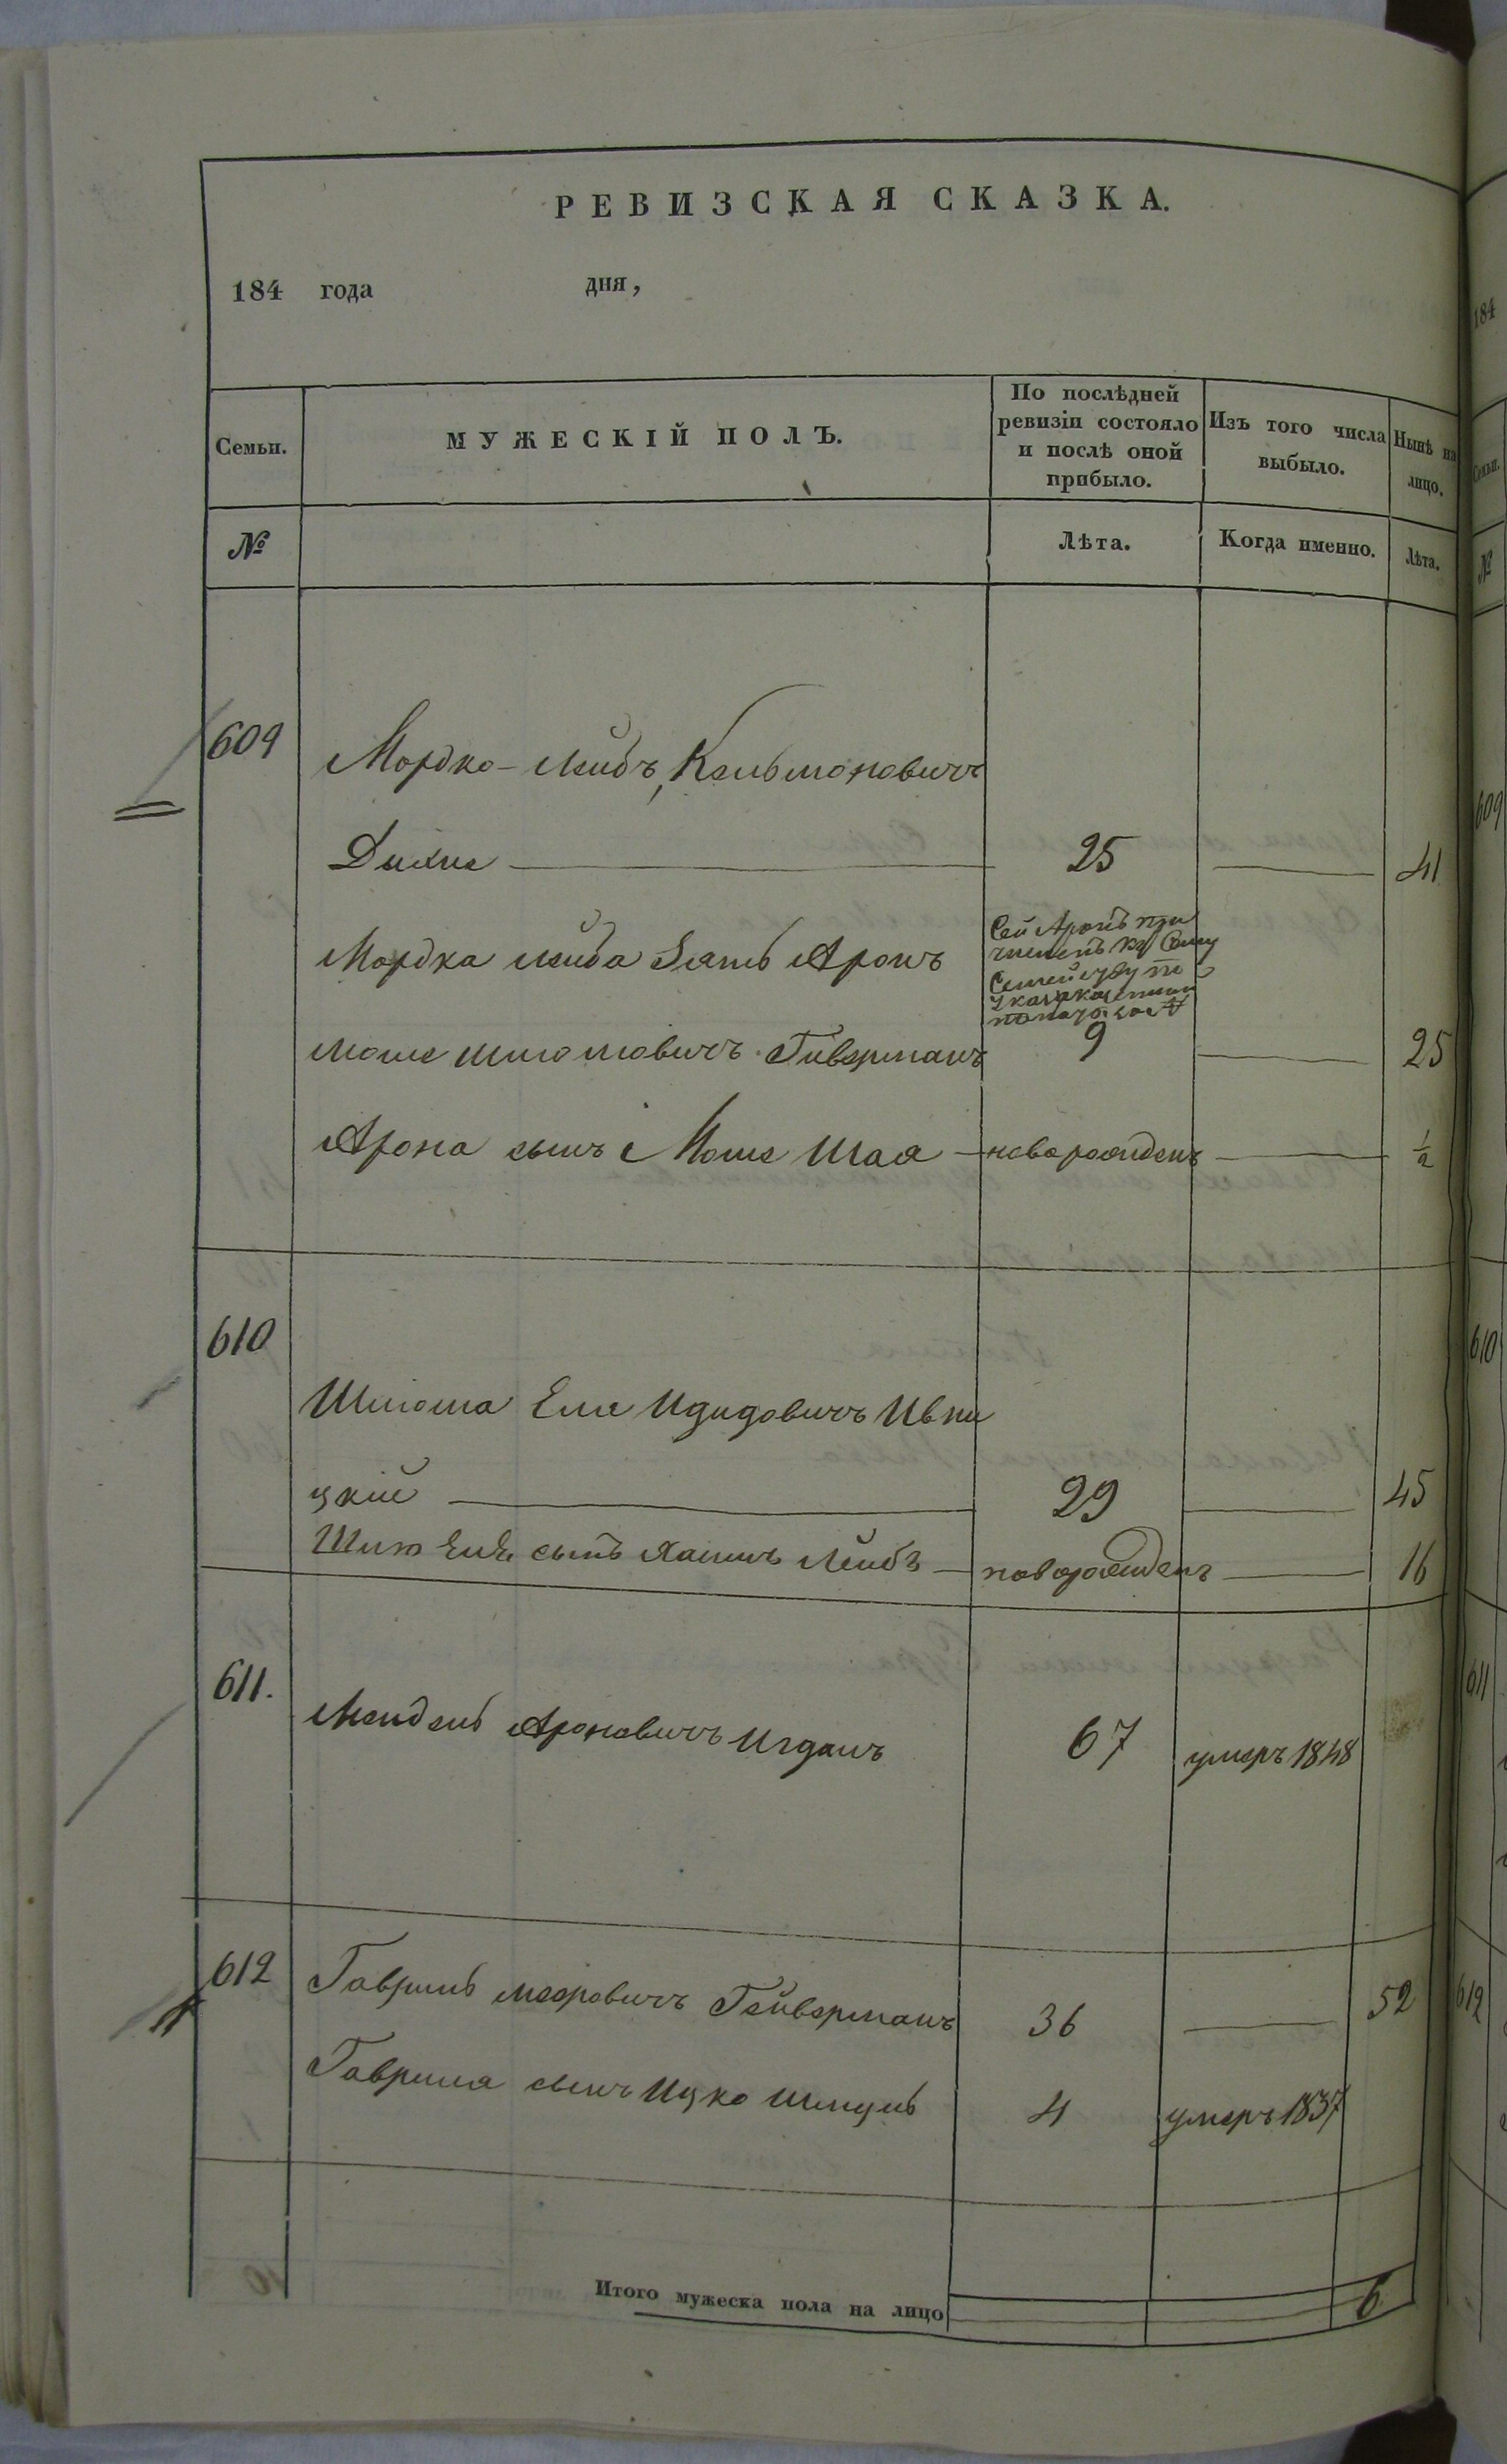 РЕВИЗСКАЯ СКАЗКА.
184 года дня,
Семьи. МУЖЕСКІЙ ПОЛЪ. По послѣдней ревизіи состояло и послѣ оной прибыло. Изъ того числа выбыло. Нынѣ на лицо.
№ Лѣта. Когда именно. Лѣта.
609 Мордко-Лейбъ Кельмоновичъ
25 41
Мордка Лейба Зять Аронъ
Сей Аронъ при
численъ къ Сему
Семейству по
Моше Шмомовичъ Гиверманъ 9 25
Арона сынъ Моше Шая новорожденъ ½
610
Шлиома Еле Идидовичъ Ивни
цкій 29 45
сынъ Хаимъ Лейбъ новорожденъ 16
611. Мендель Ароновичъ Игданъ 67 умеръ 1848
612 Гавриль Мееровичъ Гейверманъ 36 52
Гаврила сынъ Ицко Шмуль 4 умеръ 1837
Итого мужеска пола на лицо 6
184
Семьи.
№
609
610
611
612